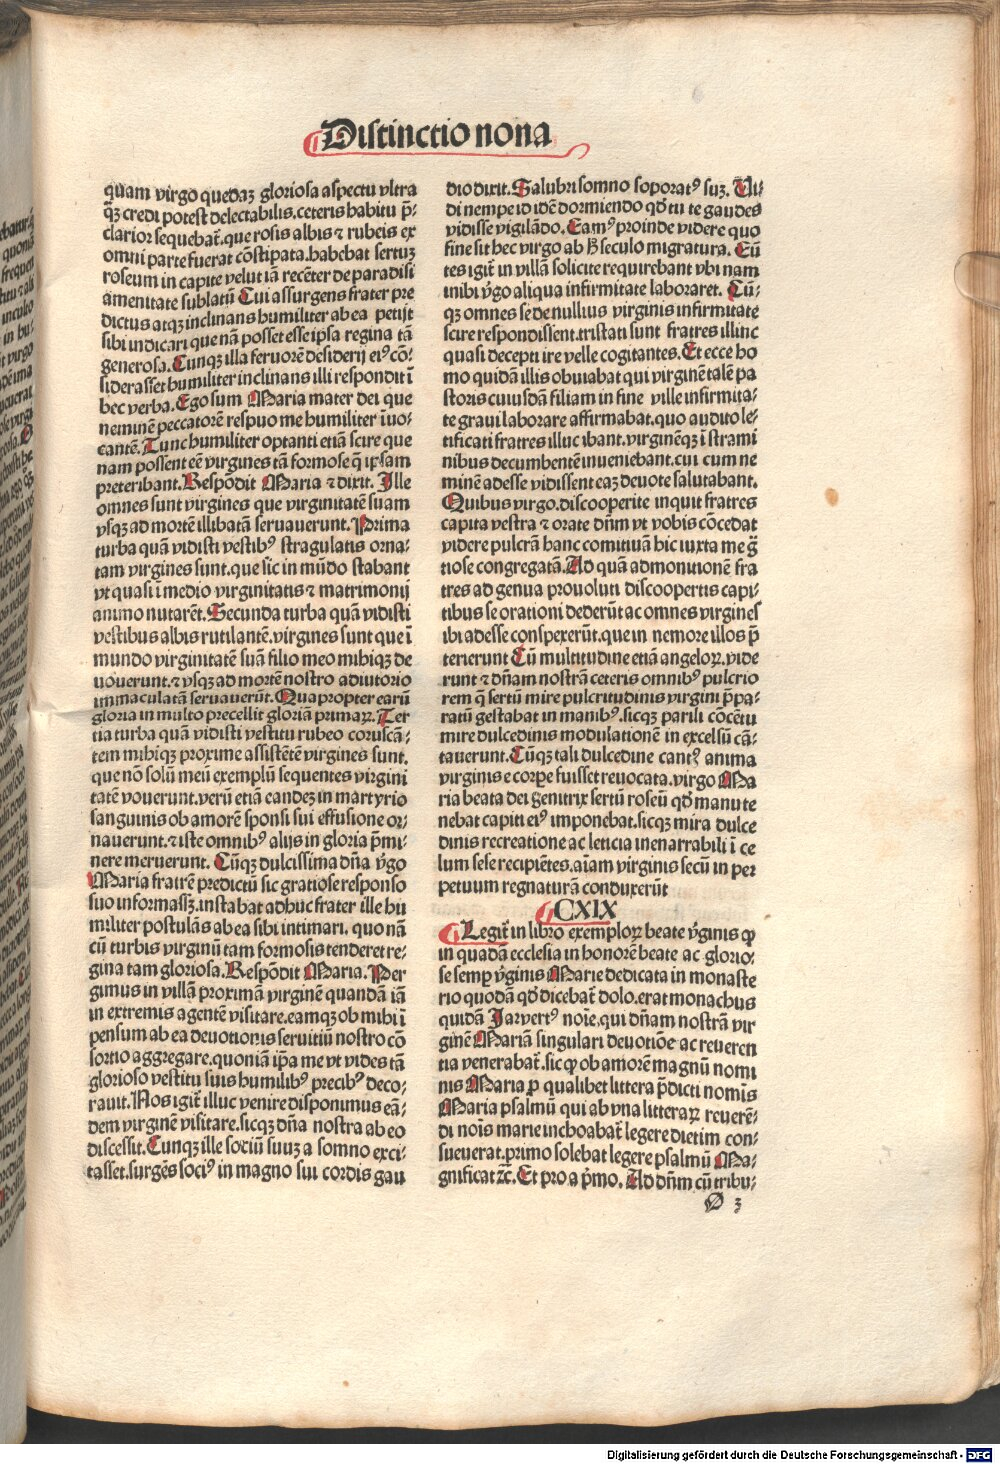 Distinctio nona
quam virgo quedaȝ gloriosa aspectu vltra
qȝ credi potest delectabilis.ceteris habitu p̄-
clarior sequebat̄.que rosis albis ⁊ rubeis ex
omni parte fuerat cōstipata.habebat sertuȝ
roseum in capite velut iā recēter de paradisi
amenitate sublatū Cui assurgens frater pre
dictus atqȝ inclinans humiliter ab ea petijt
sibi indicari que nā posset esse ipsa regina tā
generosa.Cunqȝ illa feruorē desiderij eiꝰ cō-
siderasset humiliter inclinans illi respondit ī
hec verba.Ego sum Maria mater dei que
neminē peccatorē respuo me humiliter īuo-
cantē.Tunc humiliter optanti etiā scire que
nam possent eē virgines tā formose q̄ ipsam
preteribant.Respōdit Maria ⁊ dixit. Ille
omnes sunt virgines que virginitatē suam
vsqȝ ad mortē illibatā seruauerunt.Prima
turba quā vidisti vestibꝰ stragulatis orna-
tam virgines sunt.que sic in mūdo stabant
vt quasi ī medio virginitatis ⁊ matrimonij
animo nutarēt.Secunda turba quā vidisti
vestibus albis rutilantē.virgines sunt que ī
mundo virginitatē suā filio meo mihiqȝ de
vouerunt.⁊ vsqȝ ad mortē nostro adiutorio
immaculatā seruauerūt.Qua propter earū
gloria in multo precellit gloriā primaꝝ.Ter
tia turba quā vidisti vestitu rubeo coruscā-
tem mihiqȝ proxime assistētē virgines sunt.
que nō solū meū exemplū sequentes virgini
tatē vouerunt.verū etiā eandeȝ in martyrio
sanguinis ob amorē sponsi sui effusione or-
nauerunt.⁊ iste omnibꝰ alijs in gloria p̄mi-
nere meruerunt. Cūqȝ dulcissima dn̄a v̄go
Maria fratrē predictū sic gratiose responso
suo informassȝ.instabat adhuc frater ille hu
militer postulās ab ea sibi intimari. quo nā
cū turbis virginū tam formosis tenderet re-
gina tam gloriosa.Respōdit Maria.Per
gimus in villā proximā virginē quandā iā
in extremis agentē visitare.eamqȝ ob mihi ī
pensum ab ea deuotionis seruitiū nostro cō
sortio aggregare.quoniā ip̄a me vt vides tā
glorioso vestitu suis humilibꝰ precibꝰ deco-
rauit.Nos igit̄ illuc venire disponimus eā-
dem virginē visitare.sicqȝ dn̄a nostra ab eo
discessit.Cunqȝ ille sociū suuȝ a somno exci-
tasset.surgēs sociꝰ in magno sui cordis gau
dio dixit.Salubri somno soporatꝰ suȝ. Vi-
di nempe id idē dormiendo qd̄ tu te gaudes
vidisse vigilādo.Eamꝰ proinde videre quo
fine sit hec virgo ab h̄ seculo migratura. Eū
tes igit̄ in villā solicite requirebant vbi nam
inibi v̄go aliqua infirmitate laboraret. Cū-
qȝ omnes se de nullius virginis infirmitate
scire respondissent.tristati sunt fratres illinc
quasi decepti ire velle cogitantes.Et ecce ho
mo quidā illis obuiabat qui virginē talē pa
storis cuiusdā filiam in fine ville infirmita-
te graui laborare affirmabat.quo audito le-
tificati fratres illuc ibant.virginēqȝ ī strami
nibus decumbentē inueniebant.cui cum ne
minē adesse vidissent eaȝ deuote salutabant.
Quibus virgo.discooperite inquit fratres
capita vestra ⁊ orate dn̄m vt vobis cōcedat
videre pulcrā hanc comitiuā hic iuxta me ḡ
tiose congregatā.Ad quā admonitionē fra
tres ad genua prouoluti discoopertis capi-
tibus se orationi dederūt ac omnes virgines
ibi adesse conspexerūt.que in nemore illos p̄
terierunt Cū multitudine etiā angeloꝝ.vide
runt ⁊ dn̄am nostrā ceteris omnibꝰ pulcrio
rem q̄ sertū mire pulcritudinis virgini p̄pa-
ratū gestabat in manibꝰ.sicqȝ parili cōcētu
mire dulcedinis modulationē in excelsū cā-
tauerunt.Cūqȝ tali dulcedine cantꝰ anima
virginis e corpe fuisset reuocata.virgo Ma
ria beata dei genitrix sertū roseū qd̄ manu te
nebat capiti eiꝰ imponebat.sicqȝ mira dulce
dinis recreatione ac leticia inenarrabili ī ce
lum sese recipiētes.aīam virginis secū in per
petuum regnaturā conduxerūt
CXIX
Legit̄ in libro exemploꝝ beate v̄ginis ꝙ
in quadā ecclesia in honorē beate ac glorio-
se semꝑ v̄ginis Marie dedicata in monaste
rio quodā qd̄ dicebat̄ dolo.erat monachus
quidā Jarvertꝰ noīe.qui dn̄am nostrā vir
ginē Mariā singulari deuotiōe ac reueren
tia venerabat̄.sic ꝙ ob amorē magnū nomi
nis Maria ꝓ qualibet littera p̄dicti nomīs
Maria psalmū qui ab vna litteraꝝ reuerē-
di noīs marie inchoabat̄ legere dietim con-
sueuerat.primo solebat legere psalmū Ma-
gnificat ⁊c̄.Et pro a p̄mo. Ad dn̄m cū tribu-
Ø 3
Digitalisierung gefördert durch die Deutsche Forschungsgemeinschaft - DFG